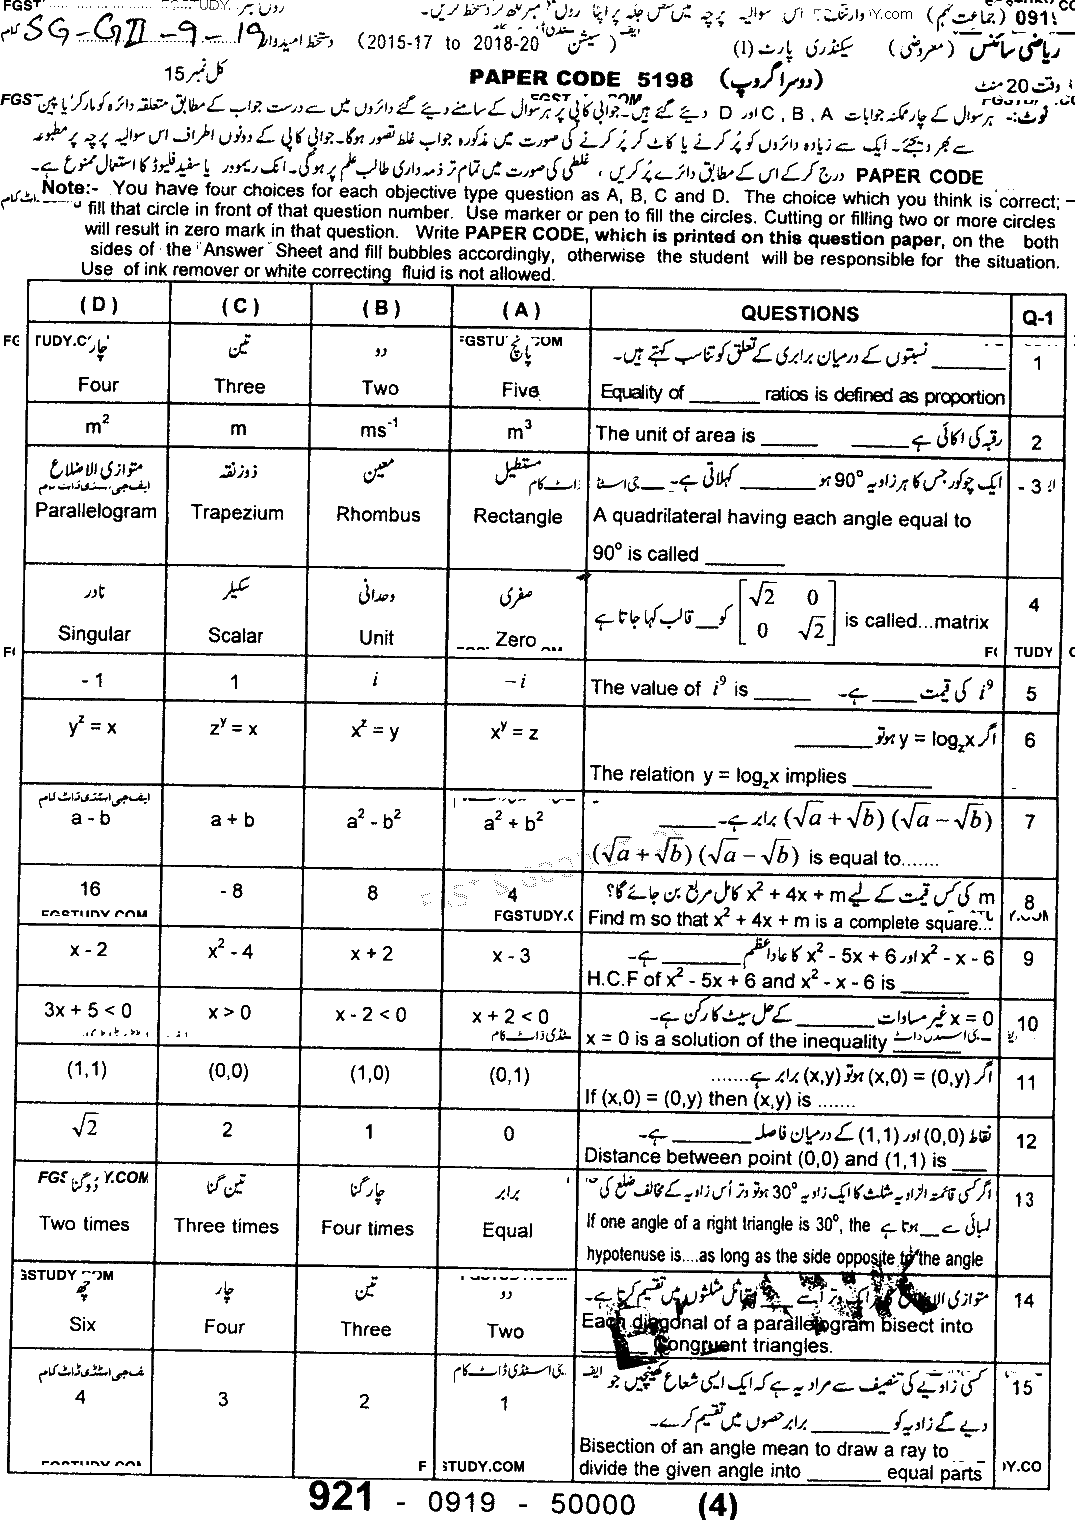 SG-GII-9-19
(2015-17 to 2018-20)
ریاضی سائنس (معروضی) سیکنڈری پارٹ (I)
کل نمبر 15
PAPER CODE 5198 (دوسرا گروپ)
وقت 20 منٹ
نوٹ:- ہر سوال کے چار ممکنہ جوابات A ، B ، C اور D دیئے گئے ہیں۔ جوابی کاپی پر ہر سوال کے سامنے دیئے گئے دائروں میں سے درست جواب کے مطابق متعلقہ دائرہ کو مارکر یا پین
سے بھر دیجئے۔ ایک سے زیادہ دائروں کو پُر کرنے یا کاٹ کر پُر کرنے کی صورت میں مذکورہ جواب غلط تصور ہوگا۔ جوابی کاپی کے دونوں اطراف اس سوالیہ پرچہ پر مطبوعہ
PAPER CODE درج کر کے اس کے مطابق دائرے پُر کریں، غلطی کی صورت میں تمام تر ذمہ داری طالب علم پر ہوگی۔ انک ریموور یا سفید فلیوڈ کا استعمال ممنوع ہے۔
Note:- You have four choices for each objective type question as A, B, C and D. The choice which you think is correct;
fill that circle in front of that question number. Use marker or pen to fill the circles. Cutting or filling two or more circles
will result in zero mark in that question. Write PAPER CODE, which is printed on this question paper, on the both
sides of the Answer Sheet and fill bubbles accordingly, otherwise the student will be responsible for the situation.
Use of ink remover or white correcting fluid is not allowed.
(D) (C) (B) (A) QUESTIONS Q-1
چار تین دو پانچ ______ نسبتوں کے درمیان برابری کے تعلق کو تناسب کہتے ہیں۔ 1
Four Three Two Five Equality of ______ ratios is defined as proportion
m² m ms⁻¹ m³ The unit of area is _____ رقبہ کی اکائی _____ ہے 2
متوازی الاضلاع ذوزنقہ معین مستطیل ایک چوکور جس کا ہر زاویہ 90° ہو ______ کہلاتی ہے۔ 3
Parallelogram Trapezium Rhombus Rectangle A quadrilateral having each angle equal to
90° is called _______
نادر سکیلر وحدانی صفری [√2 0; 0 √2] کو __ قالب کہا جاتا ہے is called...matrix 4
Singular Scalar Unit Zero
- 1 1 i −i The value of i⁹ is _____ i⁹ کی قیمت _____ ہے۔ 5
yᶻ = x zʸ = x xᶻ = y xʸ = z اگر y = log_z x ہو تو _______ 6
The relation y = log_z x implies _______
a - b a + b a² - b² a² + b² (√a + √b) (√a − √b) برابر ہے۔ _____ 7
(√a + √b) (√a − √b) is equal to.......
16 - 8 8 4 m کی کس قیمت کے لیے x² + 4x + m کامل مربع بن جائے گا؟ 8
FGSTUDY.COM Find m so that x² + 4x + m is a complete square...
x - 2 x² - 4 x + 2 x - 3 x² - x - 6 اور x² - 5x + 6 کا عاداعظم _______ ہے۔ 9
H.C.F of x² - 5x + 6 and x² - x - 6 is ______
3x + 5 < 0 x > 0 x - 2 < 0 x + 2 < 0 x = 0 غیر مساوات _______ کے حل سیٹ کا رکن ہے۔ 10
x = 0 is a solution of the inequality ______
(1,1) (0,0) (1,0) (0,1) اگر (x,0) = (0,y) ہو تو (x,y) برابر ہے....... 11
If (x,0) = (0,y) then (x,y) is .......
√2 2 1 0 نقاط (0,0) اور (1,1) کے درمیان فاصلہ _______ ہے۔ 12
Distance between point (0,0) and (1,1) is ___
دو گنا تین گنا چار گنا برابر اگر کسی قائمۃ الزاویہ مثلث کا ایک زاویہ 30° ہو تو وتر اُس زاویہ کے مخالف ضلع کی 13
Two times Three times Four times Equal If one angle of a right triangle is 30°, the لمبائی سے __ ہوتا ہے
hypotenuse is....as long as the side opposite to the angle
چھ چار تین دو 14
Six Four Three Two Each diagonal of a parallelogram bisect into
______ Congruent triangles.
4 3 2 1 کسی زاویے کی تنصیف سے مراد یہ ہے کہ ایک ایسی شعاع کھینچیں جو 15
دیے گے زاویہ کو _______ برابر حصوں میں تقسیم کرے۔
Bisection of an angle mean to draw a ray to
divide the given angle into ______ equal parts
921 - 0919 - 50000 (4)